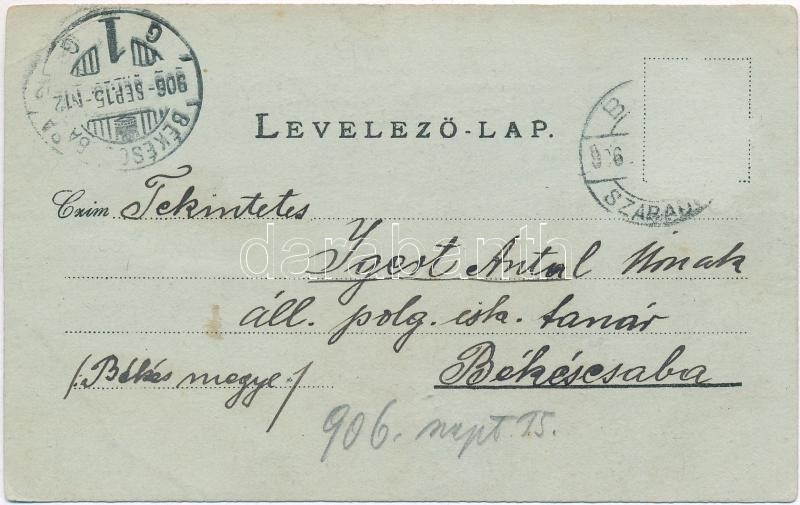 LEVELEZŐ-LAP.
BÉKÉSCSABA
906 SEP 15
1
G G
SZABAD
Czim Tekintetes
Igest Antal Úrnak
áll. polg. isk. tanár
Békéscsaba
/:Békés megye:/
906. szept 15.
darabanth